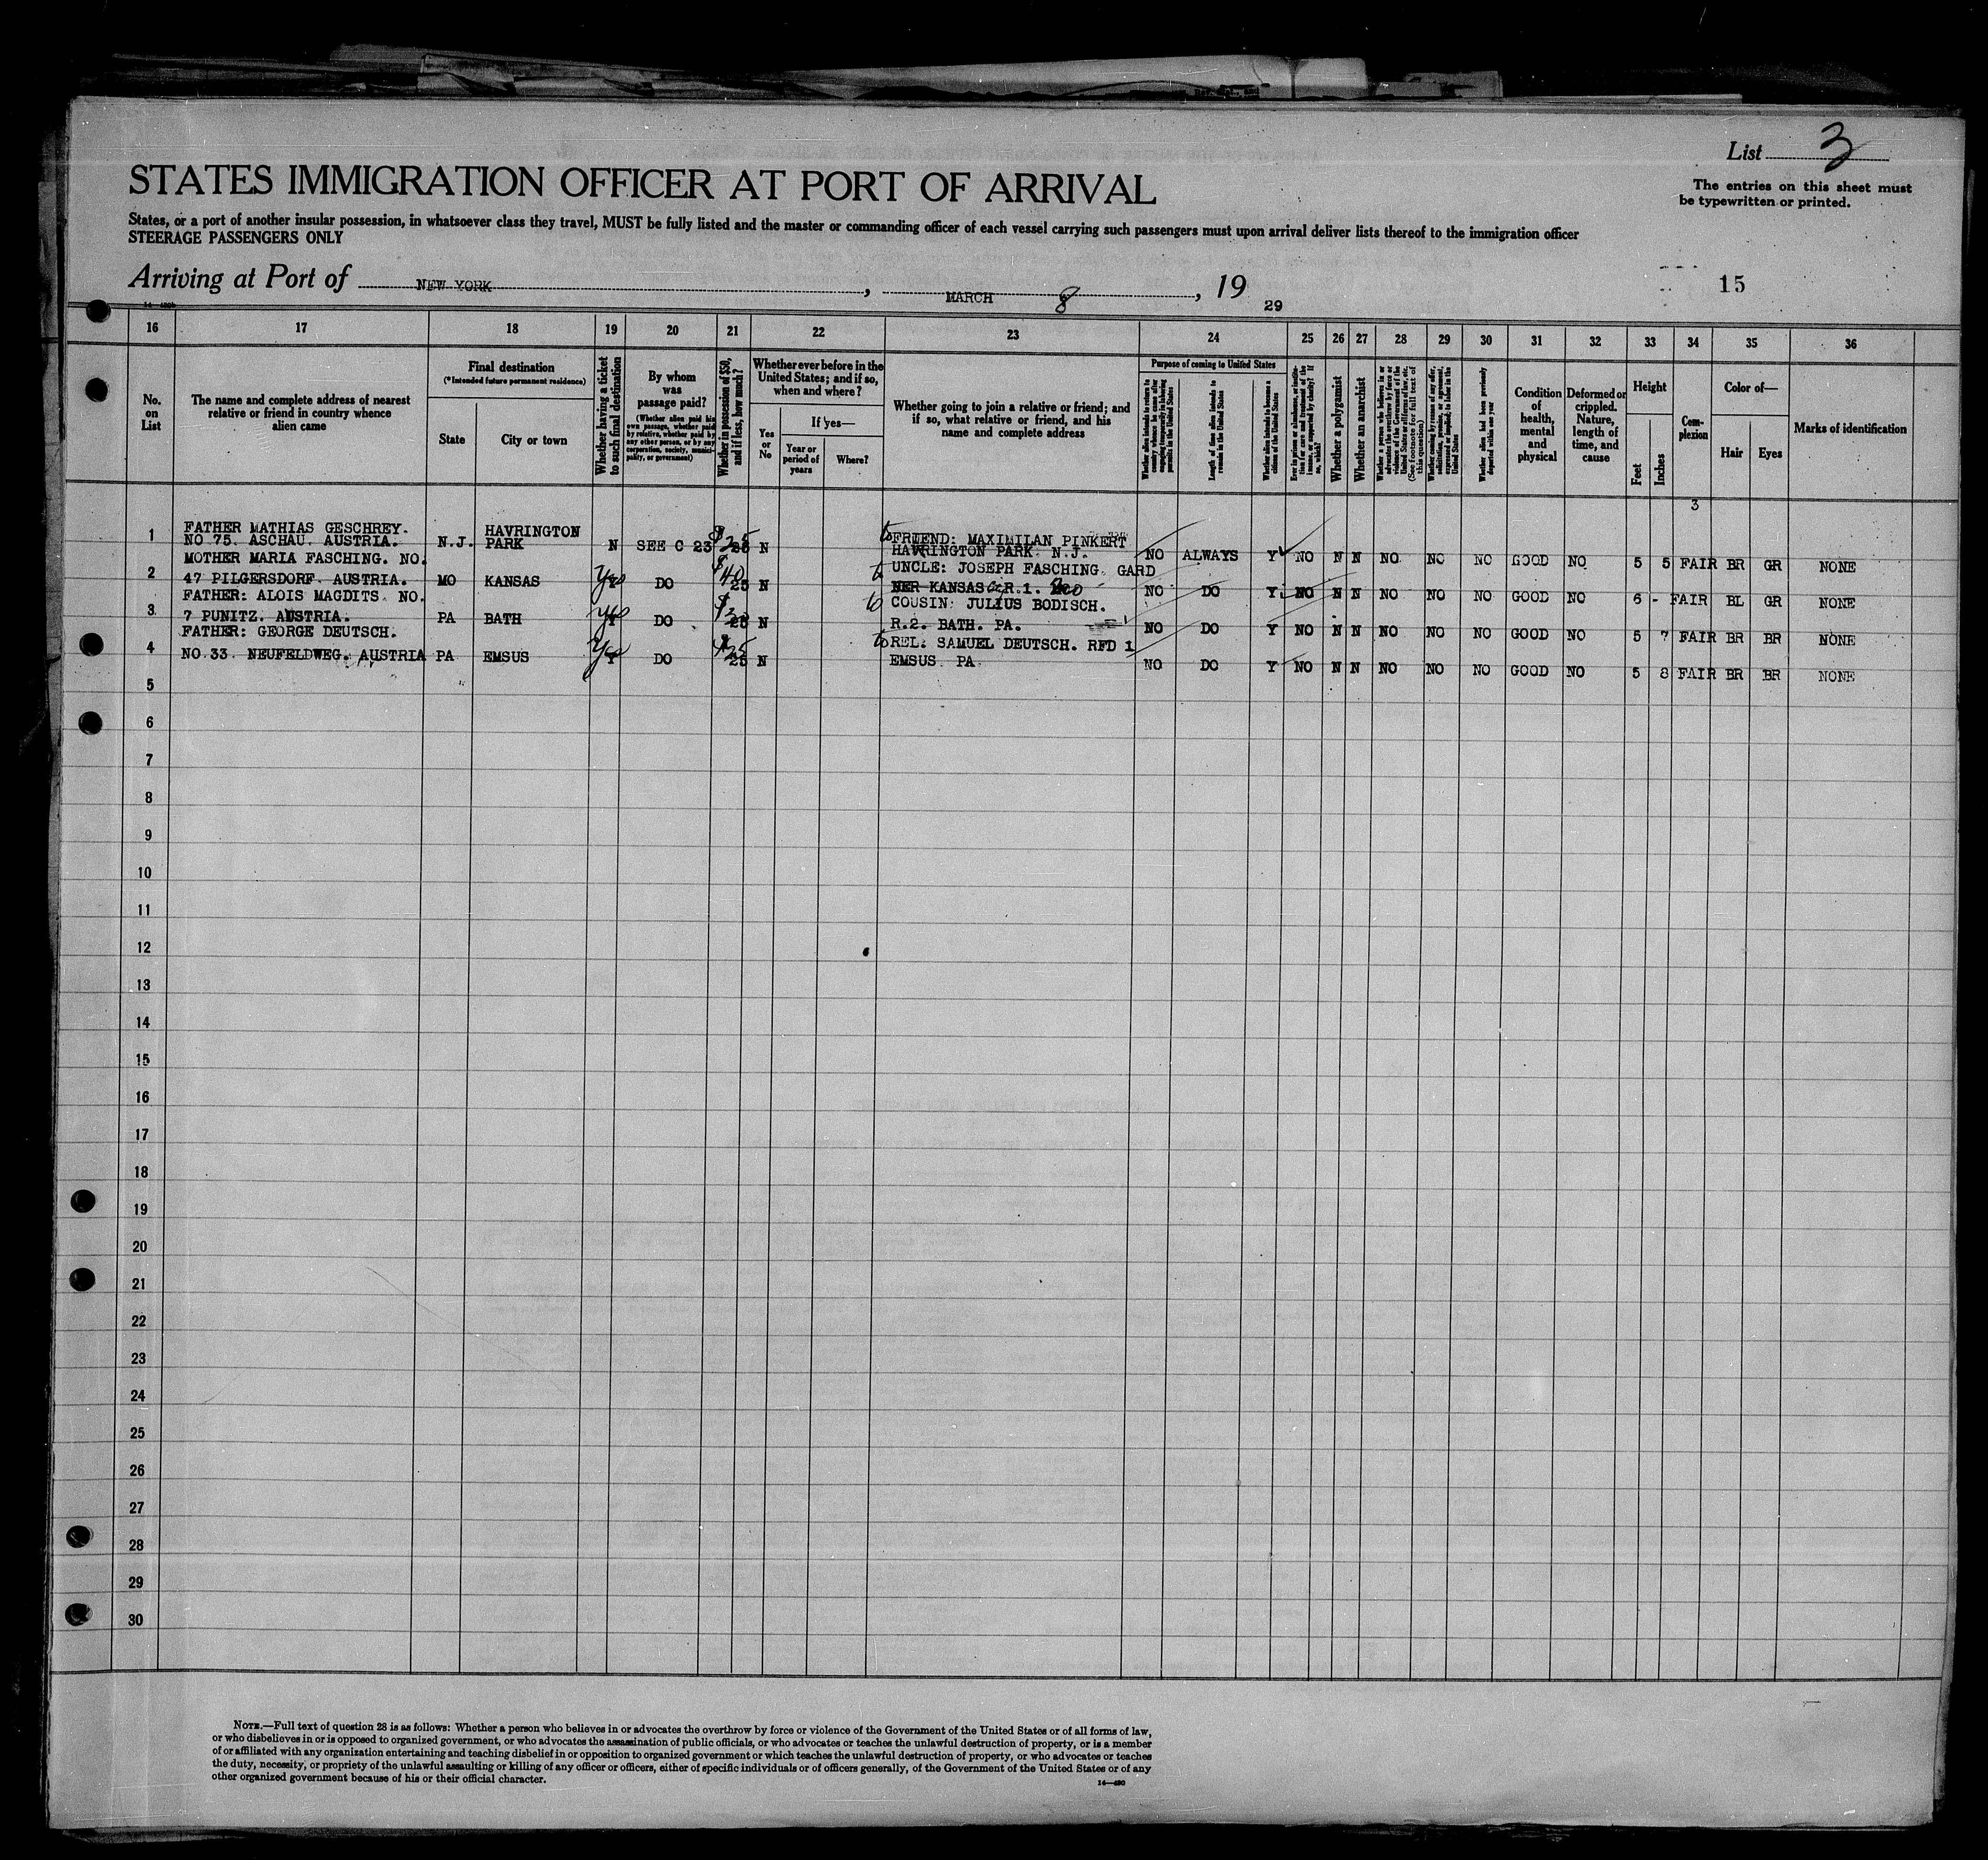 List 3
STATES IMMIGRATION OFFICER AT PORT OF ARRIVAL
The entries on this sheet must
be typewritten or printed.
States, or a port of another insular possession, in whatsoever class they travel, MUST be fully listed and the master or commanding officer of each vessel carrying such passengers must upon arrival deliver lists thereof to the immigration officer
STEERAGE PASSENGERS ONLY
Arriving at Port of NEW YORK, MARCH 8, 19 29
15
16 17 18 19 20 21 22 23 24 25 26 27 28 29 30 31 32 33 34 35 36
No. on List
The name and complete address of nearest
relative or friend in country whence
alien came
Final destination
(*Intended future permanent residence)
State
City or town
Whether having a ticket
to such final destination
By whom
was
passage paid?
(Whether alien paid his
own passage, whether paid
by relative, whether paid by
any other person, or by any
corporation, society, munici-
pality, or government)
Whether in possession of $50,
and if less, how much?
Whether ever before in the
United States; and if so,
when and where?
Yes
or
No
If yes—
Year or
period of
years
Where?
Whether going to join a relative or friend; and
if so, what relative or friend, and his
name and complete address
Purpose of coming to United States
Length of time alien intends to
remain in the United States
Whether alien intends to become a
citizen of the United States
Whether a polygamist
Whether an anarchist
(See footnote for full text of
this question)
Whether alien had been previously
deported within one year
Condition
of
health,
mental
and
physical
Deformed or
crippled.
Nature,
length of
time, and
cause
Height
Feet
Inches
Com-
plexion
Color of—
Hair
Eyes
Marks of identification
3
1 FATHER MATHIAS GESCHREY.
NO 75. ASCHAU. AUSTRIA. N.J. HAVRINGTON
PARK N SEE C 23 $25 25 N to FRIEND: MAXIMILAN PINKERT
HAVRINGTON PARK. N.J. NO ALWAYS Y NO N N NO NO NO GOOD NO 5 5 FAIR BR GR NONE
2 MOTHER MARIA FASCHING. NO.
47 PILGERSDORF. AUSTRIA. MO KANSAS Yes DO $40 25 N to UNCLE: JOSEPH FASCHING. GARD
NER KANSAS R.1. NO DO Y NO N N NO NO NO GOOD NO 6 - FAIR BL GR NONE
3 FATHER: ALOIS MAGDITS. NO.
7 PUNITZ. AUSTRIA. PA BATH Yes DO 25 N to COUSIN: JULIUS BODISCH.
R.2. BATH. PA. NO DO Y NO N N NO NO NO GOOD NO 5 7 FAIR BR BR NONE
4 FATHER: GEORGE DEUTSCH.
NO.33. NEUFELDWEG. AUSTRIA PA EMSUS Yes DO $25 25 N to REL: SAMUEL DEUTSCH. RFD 1
EMSUS PA NO DO Y NO N N NO NO NO GOOD NO 5 8 FAIR BR BR NONE
5
6
7
8
9
10
11
12
13
14
15
16
17
18
19
20
21
22
23
24
25
26
27
28
29
30
NOTE.—Full text of question 28 is as follows: Whether a person who believes in or advocates the overthrow by force or violence of the Government of the United States or of all forms of law,
or who disbelieves in or is opposed to organized government, or who advocates the assassination of public officials, or who advocates or teaches the unlawful destruction of property, or is a member
of or affiliated with any organization entertaining and teaching disbelief in or opposition to organized government or which teaches the unlawful destruction of property, or who advocates or teaches
the duty, necessity, or propriety of the unlawful assaulting or killing of any officer or officers, either of specific individuals or of officers generally, of the Government of the United States or of any
other organized government because of his or their official character.
14—490